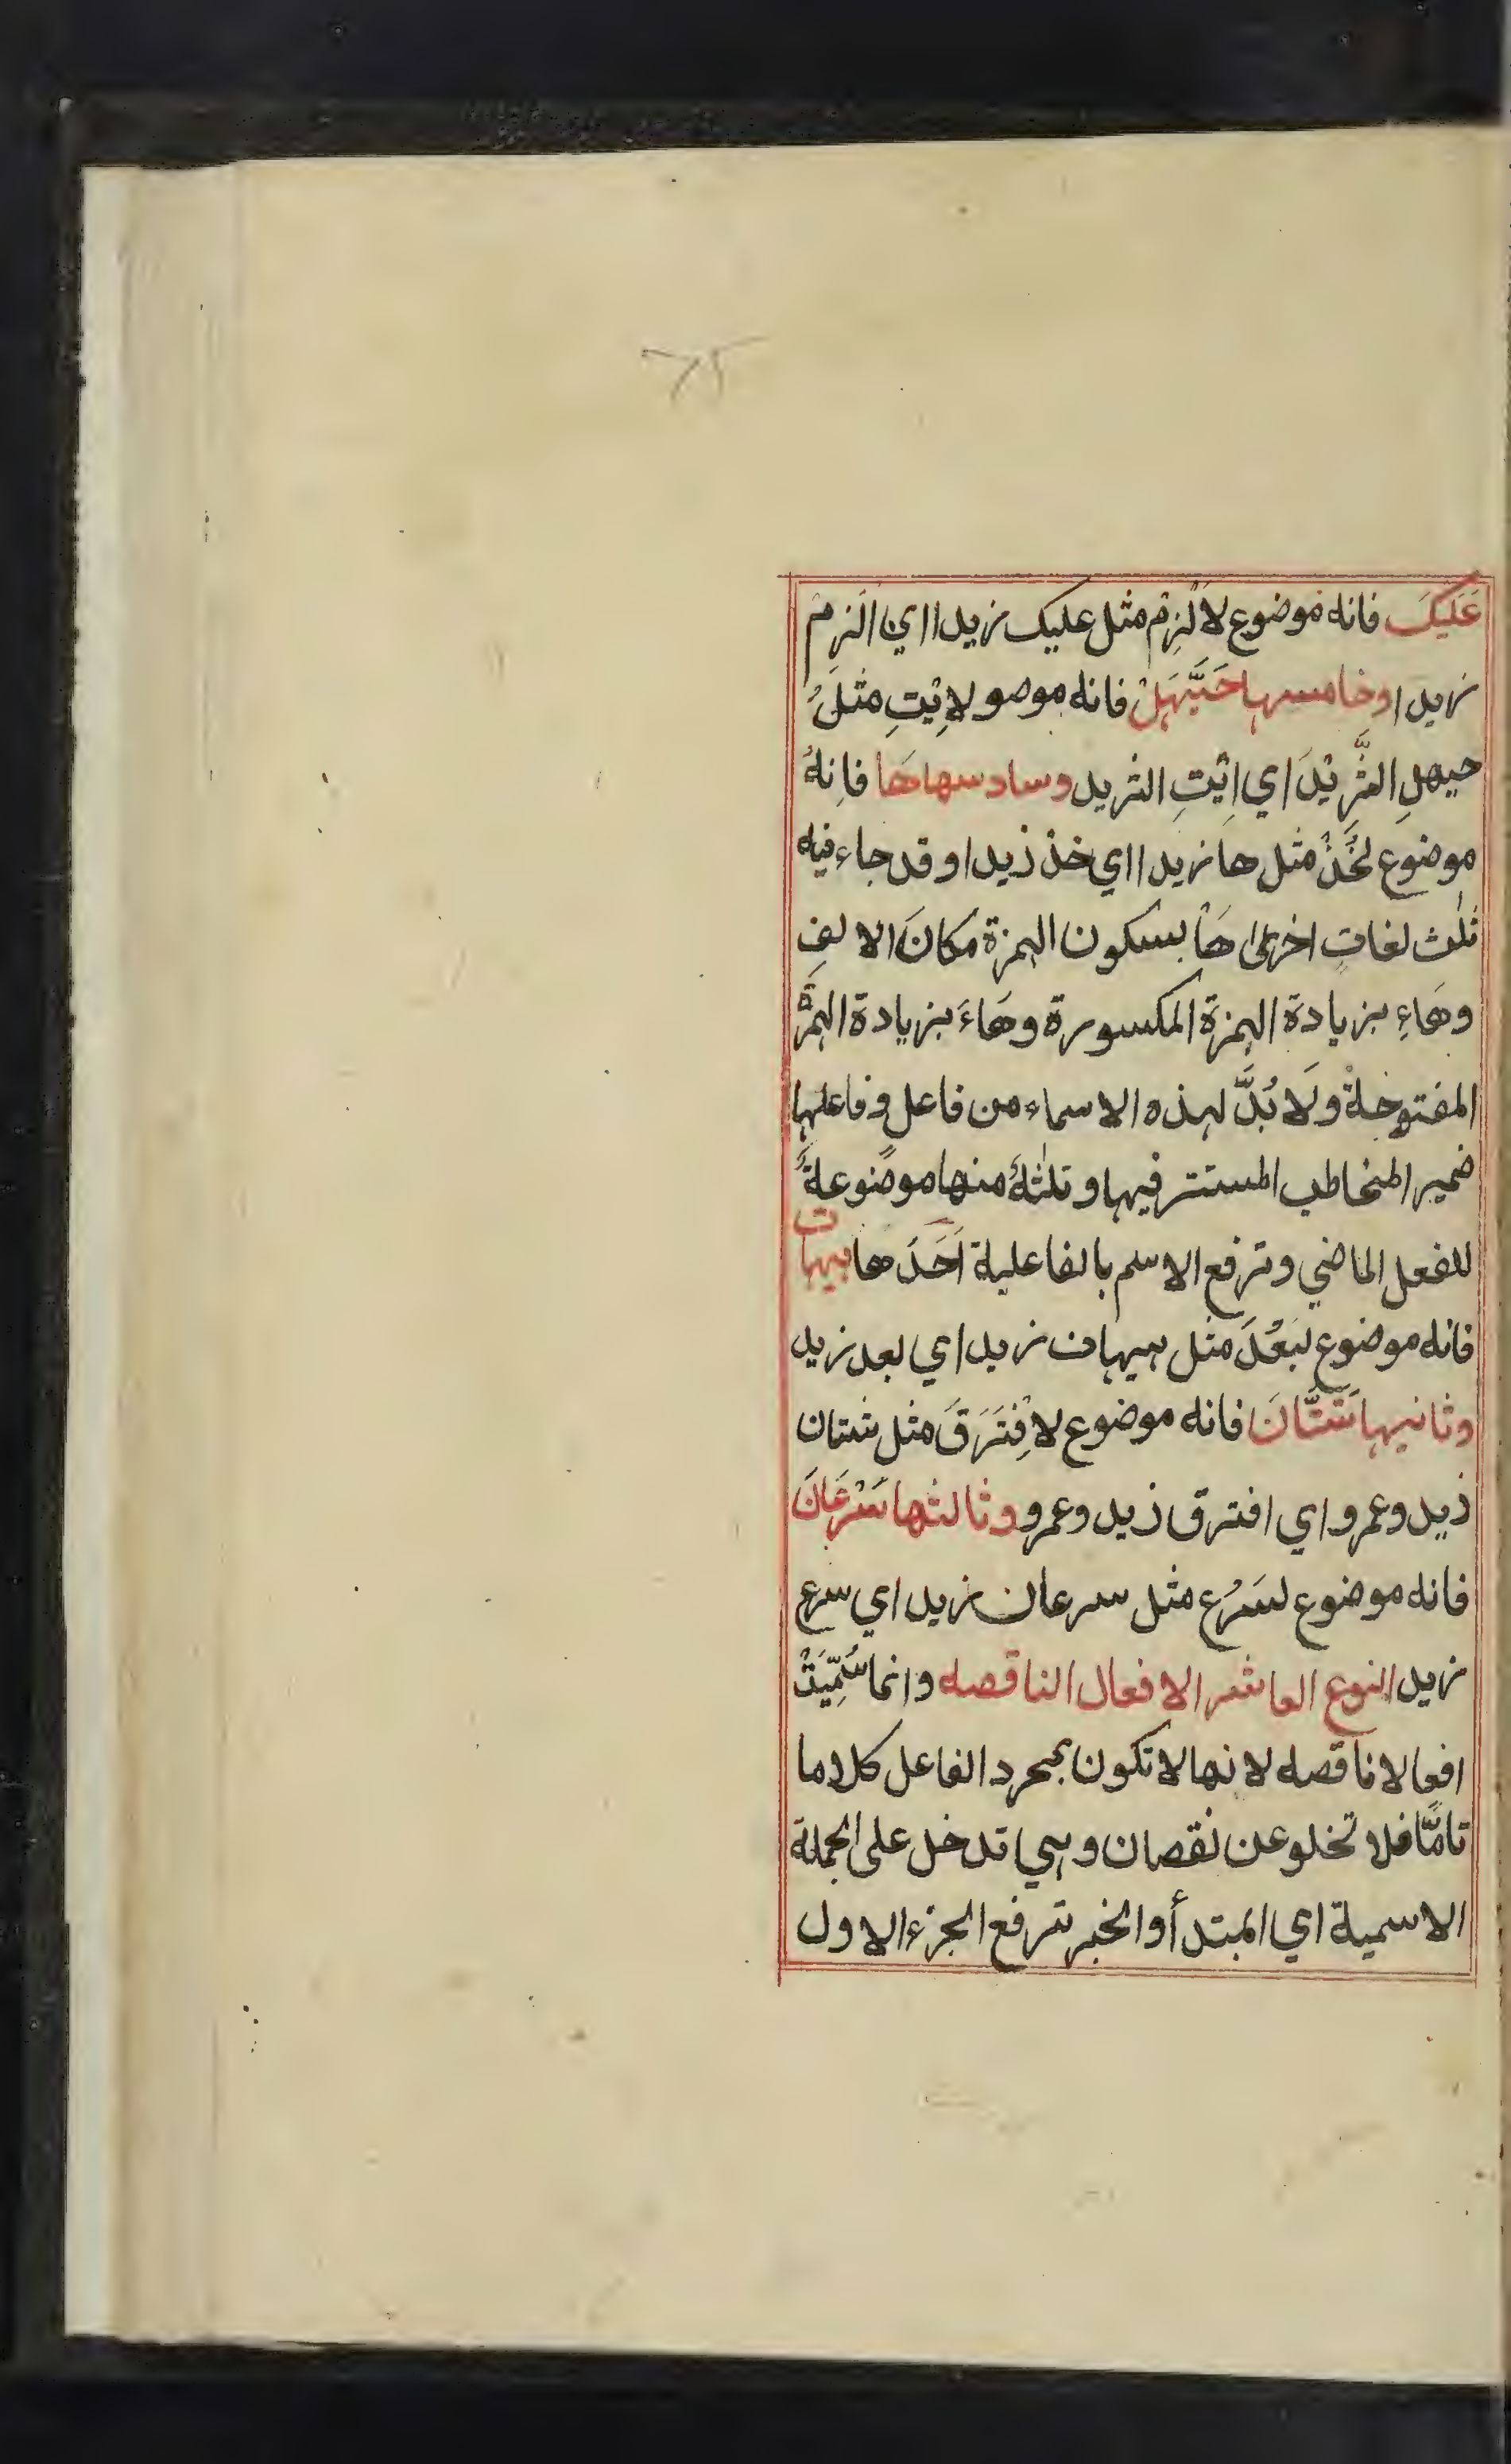 عَلَيكَ فانه موضوع لاَلْزِمْ مثل عليك زيدا اي الزم
زيدا وخامسها حَيَّهَلْ فانه موصو لاِئْيتِ مثلُ
حيهلِ الثَّرِيْدَ اي اِئْيتِ الثريد وسادسها هَا فاِنهُ
موضوع لخُذْ مثل ها زيدا اي خذ ذيدا وقد جاء فيه
ثلٰث لغاتٍ اخرٰى هَأْ بسكون الهمزة مكانَ الالفِ
وهَاءِ بزيادة الهمزة المكسورة وهَاءَ بزيادة الهمزة
المفتوحةْ ولَا بُدَّ لهذه الاسماء من فاعل وفاعلها
ضمير المخاطب المستتر فيها وثلٰثةٌ منها موضوعةٌ
للفعل الماضي وترفع الاسم بالفاعلية اَحَدَها هيهات
فانه موضوع لبَعُدَ مثل هيهات زيد اي بعد زيد
وثانيها شَتَّانَ فانه موضوع لاِفْتَرَقَ مثل شتان
ذيد وعمرو اي افترق ذيد وعمرو وثالثها سَرْعَانَ
فانه موضوع لسَرُع مثل سرعان زيد اي سرع
زيد النوع العاشر الافعال الناقصه وانما سُمِّيَتْ
افعالا ناقصه لانها لا تكون بمجرد الفاعل كلاما
تامًّا فلا تخلو عن نقصان وهي تدخل على الجملة
الاسمية اي المبتدأ والخبر ترفع الجزء الاول